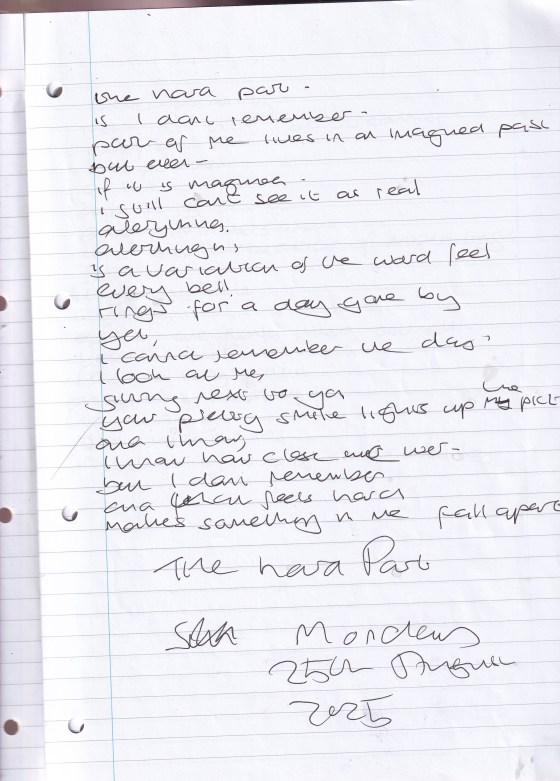 the hard part.
is I dont remember.
part of me lives in an imagined past
but even -
if it is imagined.
i still cant see it as real
everything.
everything is
is a variation of the word feel
every bell
rings for a day gone by
yet,
I cannot remember the days
I look at me,
sitting next to you
your pretty smile lights up the pict
and I know,
I know how close we were -
but I dont remember
and that feels hard
makes something in me fall apart
The hard Part
Monday
25th August
2025